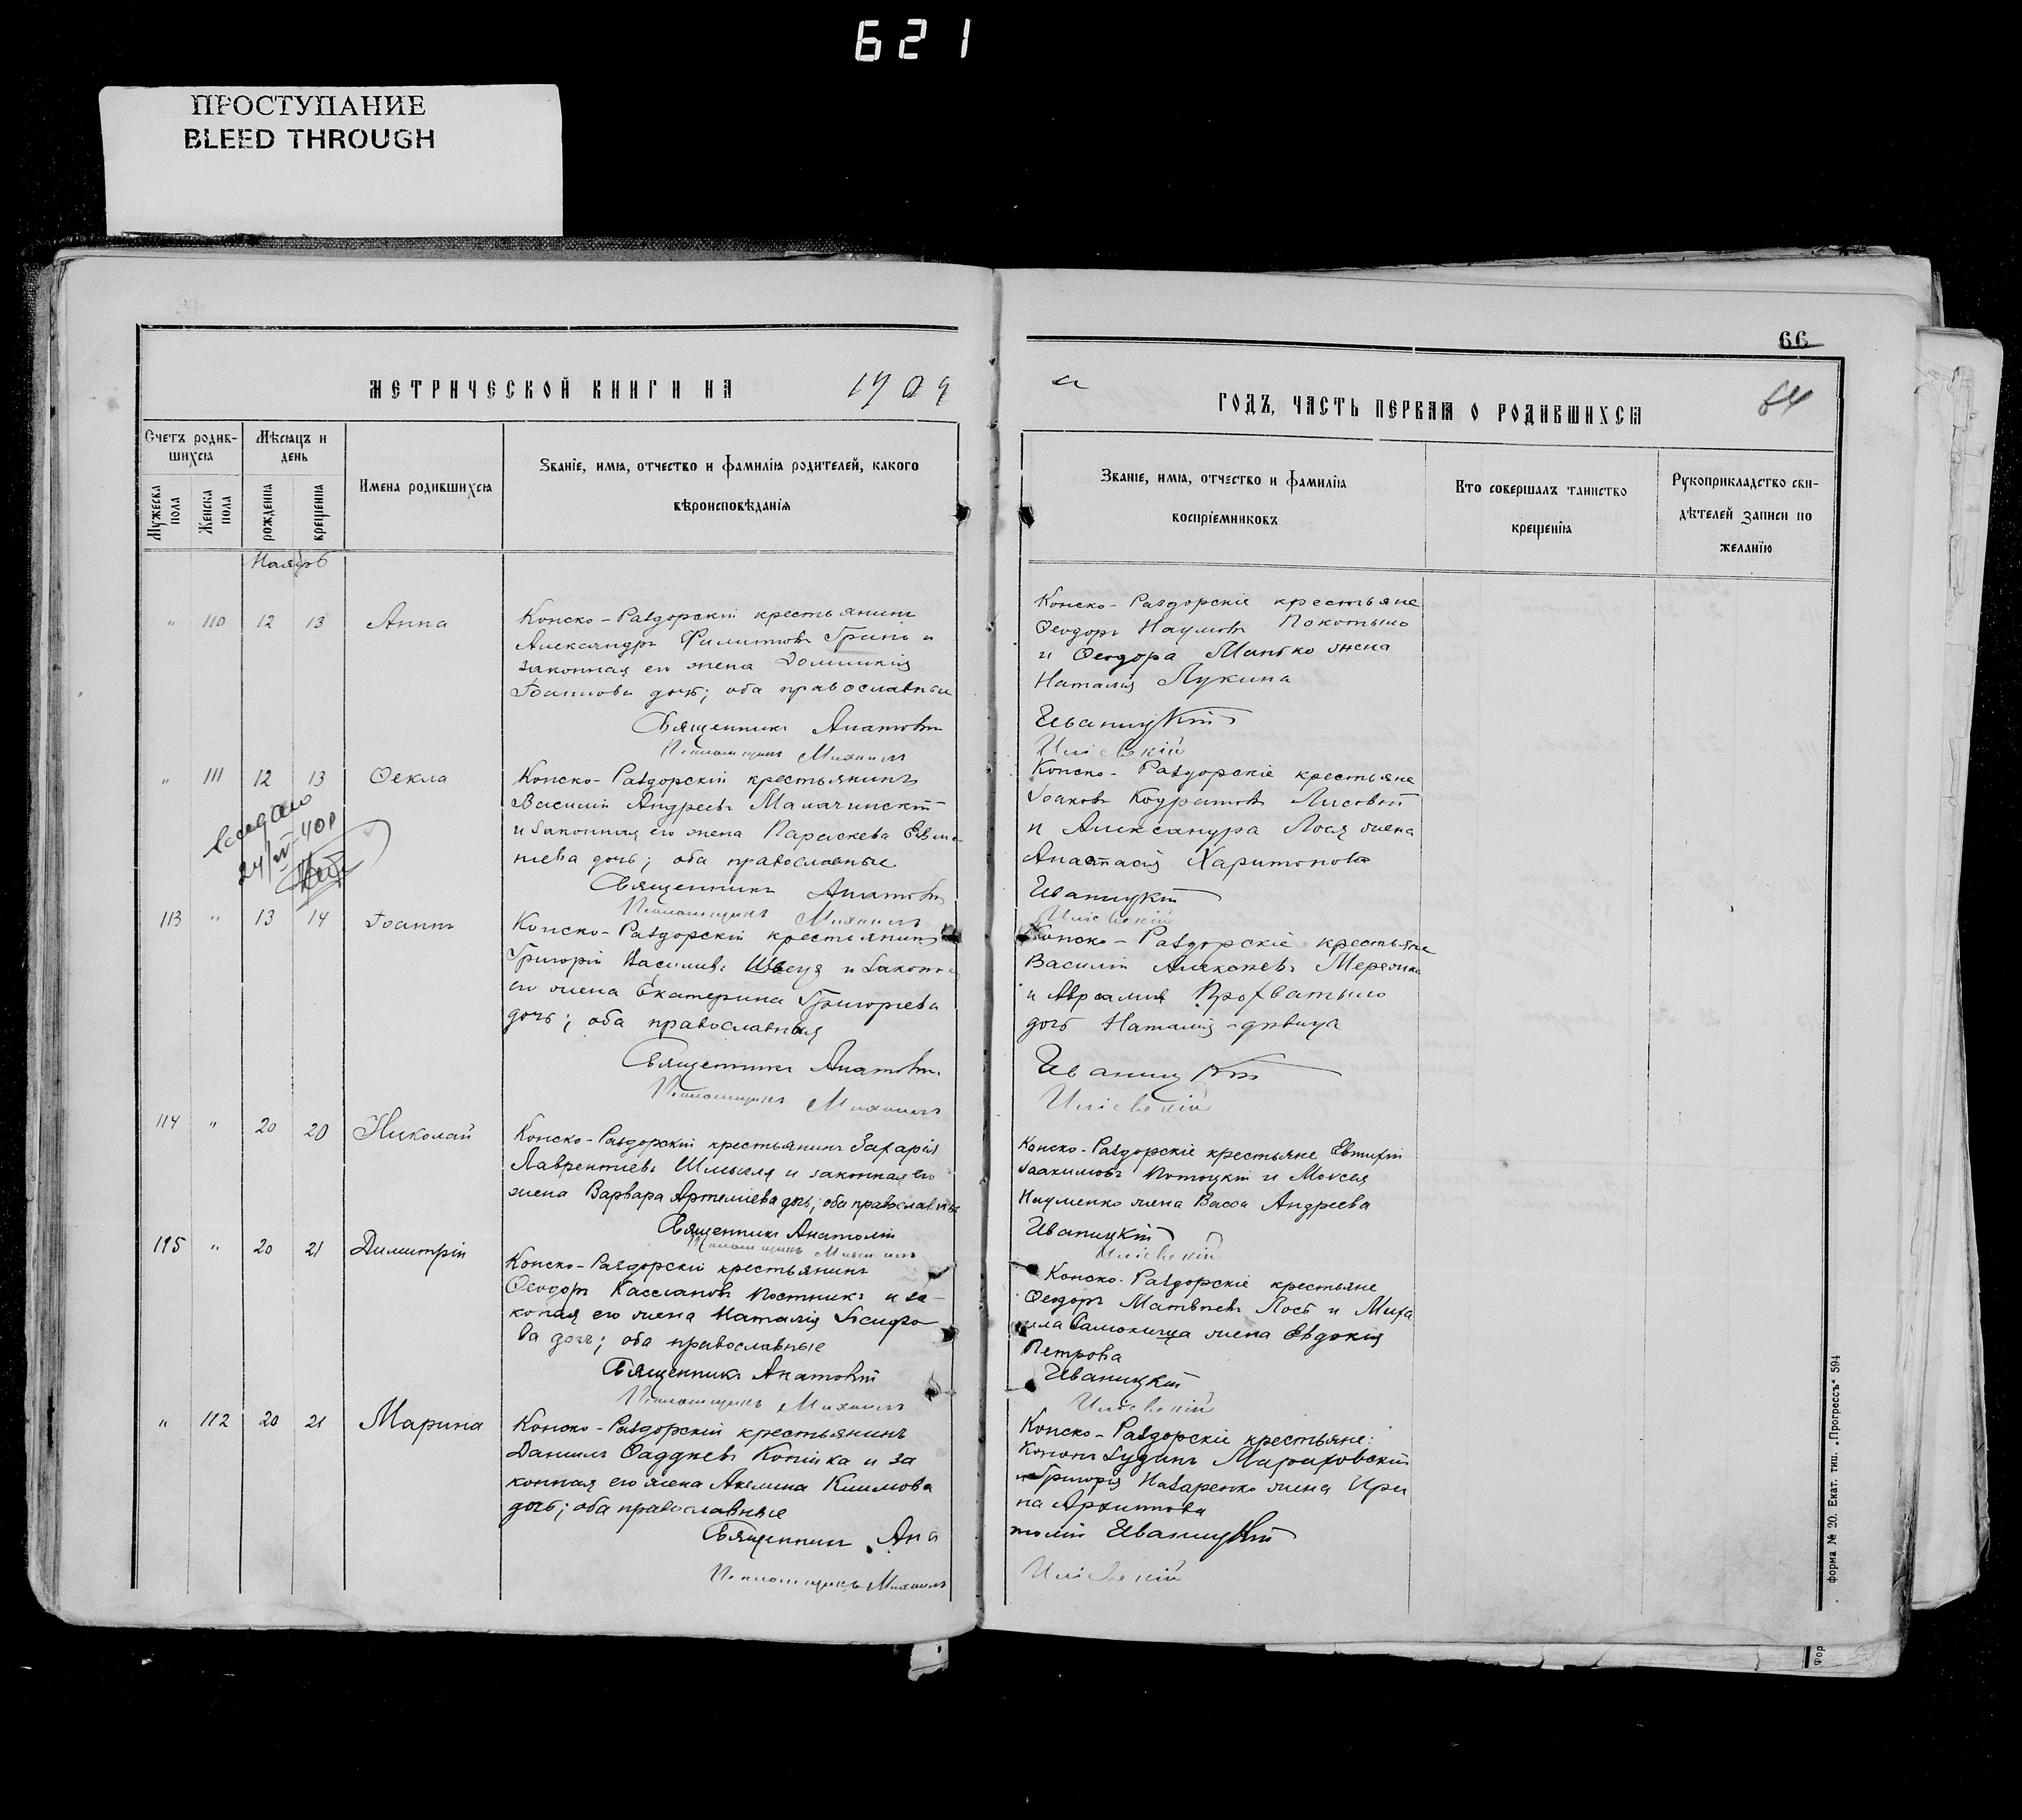 621
ПРОСТУПАНИЕ
BLEED THROUGH
66
МЕТРИЧЕСКОЙ КНИГИ НА 1909
ГОДЪ, ЧАСТЬ ПЕРВАЯ О РОДИВШИХСЯ
Счетъ родив-
шихся
Мѣсяцъ и
день
Мужеска
пола
Женска
пола
рожденіа
крещеніа
Имена родившихся
Званіе, имя, отчество и фамилія родителей, какого
вѣроисповѣданія
Званіе, имя, отчество и фамилія
воспріемниковъ
Кто совершалъ таинство
крещенія
Рукоприкладство сви-
дѣтелей записи по
желанію
Ноябрь
" 110 12 13 Анна
Конско-Раздорскій крестьянинъ
Александръ Филиповъ и
законная его жена Домникія
Іоаннова дочь; оба православные
Священникъ Анатолій
Псаломщикъ Михаилъ
Конско-Раздорскіе крестьяне
Ѳеодоръ Наумовъ Покотыло
и Ѳеодора Манько жена
Наталія Лукина
Иваницкій
" 111 12 13 Ѳекла
Конско-Раздорскій крестьянинъ
Василій Андреевъ Малачинскій
и законная его жена Параскева
дочь; оба православные
Священникъ Анатолій
Псаломщикъ Михаилъ
Конско-Раздорскіе крестьяне
Іоаковъ Кодратовъ Лисовой
и Александра Лося жена
Анастасія Харитонова
Иваницкій
113 " 13 14 Іоаннъ
Конско-Раздорскій крестьянинъ
Григорій Васильевъ Швеця и законная
его жена Екатерина Григорьева
дочь; оба православныя
Священникъ Анатолій
Псаломщикъ Михаилъ
Конско-Раздорскіе крестьяне
Василій Алексѣевъ
и Авраамія Прохватыло
дочь Наталія-дѣвица
Иваницкій
114 " 20 20 Николай
Конско-Раздорскій крестьянинъ Захарія
Лаврентіевъ Шмыгля и законная его
жена Варвара Артеміева дочь; оба православные
Священникъ Анатолій
Псаломщикъ Михаилъ
Конско-Раздорскіе крестьяне Евтихій
Іоакимовъ Потоцкій и Моисея
Науменко жена Васса Андреева
Иваницкій
115 " 20 21 Димитрій
Конско-Раздорскій крестьянинъ
Ѳеодоръ Кассіановъ Постникъ и за-
конная его жена Наталія Исидро
ва дочь; оба православные
Священникъ Анатолій
Псаломщикъ Михаилъ
Конско-Раздорскіе крестьяне
Ѳеодоръ Матвѣевъ Лось и Миха
ила жена Евдокія
Петрова
Иваницкій
" 112 20 21 Марина
Конско-Раздорскій крестьянинъ
Даніилъ Ѳаддѣевъ Копійка и за
конная его жена Акилина Климова
дочь; оба православные
Священникъ Ана
Псаломщикъ Михаилъ
Конско-Раздорскіе крестьяне:
Кононъ
и Григорія Назаренко жена Ири
на Архипова
толій Иваницкій
форма № 20. Екат. тип. „Прогрессъ" 594